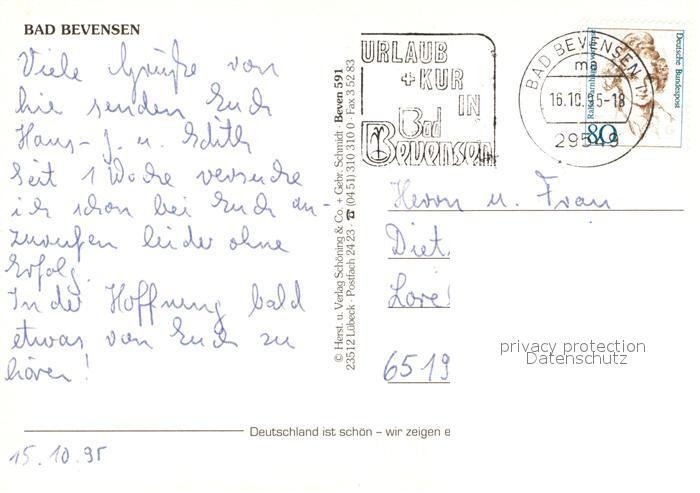 BAD BEVENSEN
Viele Grüße von
hie senden Euch
Hans-J. u. Edith
Seit 1 Woche versuche
ich schon bei Euch an-
zurufen leider ohne
Erfolg.
In der Hoffnung bald
etwas von Euch zu
hören!
Deutschland ist schön – wir zeigen e
15.10.95
© Herst. u. Verlag Schöning & Co. + Gebr. Schmidt · Beven 591
23512 Lübeck · Postfach 24 23 · ☎ (04 51) 310 310 0 · Fax 3 52 83
URLAUB
+KUR
IN
Bad
Bevensen
BAD BEVENSEN 1
ma
16.10.95-18
29549
Deutsche Bundespost
80
Herrn u. Frau
Diet
Lore
6519
privacy protection
Datenschutz